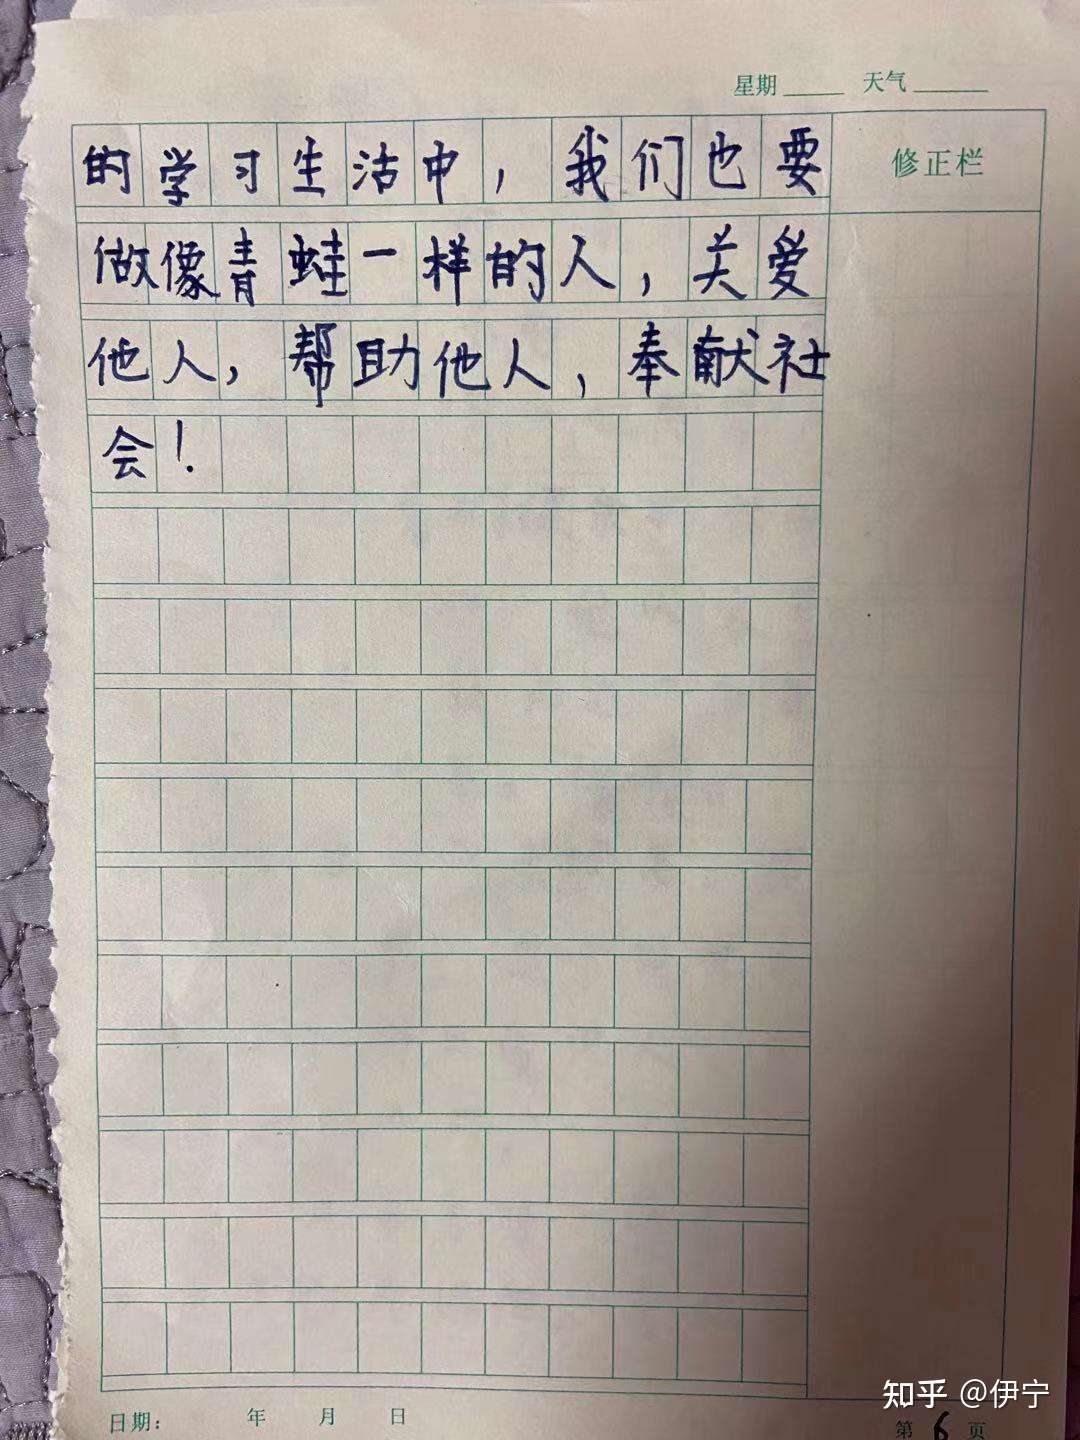 星期 天气
的学习生活中，我们也要
修正栏
做像青蛙一样的人，关爱
他人，帮助他人，奉献社
会！
知乎 @伊宁
日期： 年 月 日
第 6 页